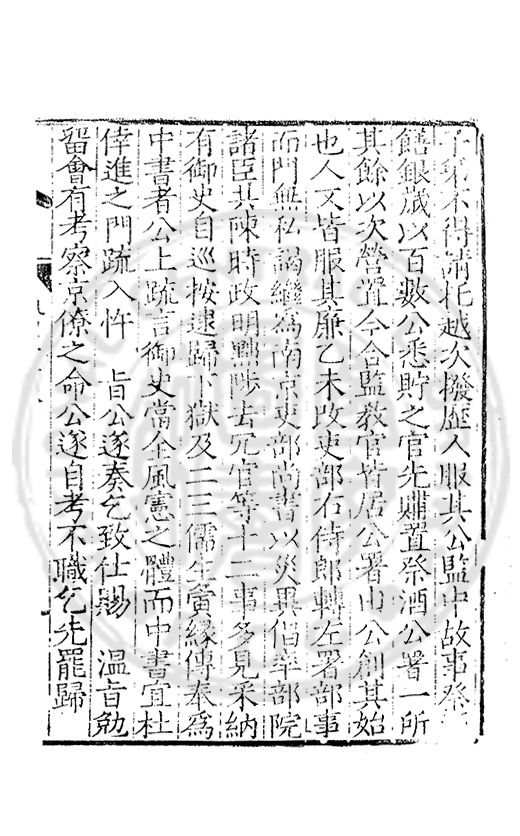 子弟不得請托越次撥歷人服其公監中故事祭
饍銀歲以百數公悉貯之官先購置祭酒公署一所
其餘以次營置今合監教官皆居公署由公創其始
也人又皆服其廉乙未改吏部右侍郎轉左署部事
而門無私謁繼爲南京吏部尚書以災異偕率部院
諸臣共陳時政明黜陟去冗官等十二事多見采納
有御史自巡按逮歸下獄及二三儒生夤緣傳奉爲
中書者公上疏言御史當全風憲之體而中書宜杜
倖進之門疏入忤 旨公遂奏乞致仕賜 溫旨勉
留會有考察京僚之命公遂自考不職乞先罷歸